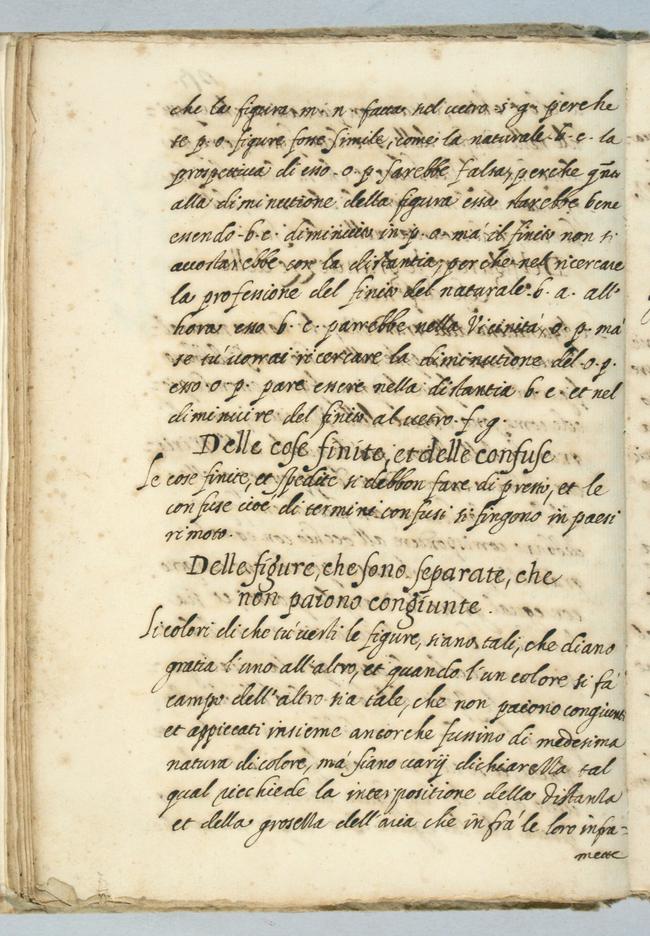 che la figura m· n· fatta nel vetro s· g· perche
se p· o· figure fosse simile, come la naturale b· c· la
prospettiva di esso · o· p· sarebbe falsa, perche
alla diminutione della figura essa starebbe bene
essendo · b· c· diminuito in · p· o· má il finito non si
accostarebbe con la distantia, perche nel ricercare
la professione del finito del naturale · b· a· all'
hora esso b· c· parrebbe nella Vicinitá o· p· má
se tú vorrai ricercare la diminutione del · o· p·
esso · o· p· pare essere nella distantia b· c· et nel
diminuire del finito al vetro · f· g·
Delle cose finite, et delle confuse
Le cose finite, et spedite si debbon fare di presso, et le
confuse cioé di termini confusi si fingono in paesi
rimoto.
Delle figure, che sono separate, che
non paiono congiunte.
Li colori di che tú vesti le figure, siano tali, che diano
gratia l'uno all'altro, et quando l'un colore si fá
campo dell'altro sia tale, che non paiono congiunti
et appiccati insieme ancorche fussino di medesima
natura di colore, má siano varij di chiarezza tal
qual richiede la interpositione della distanza
et della grossezza dell'aria che infrá le loro infra=
mette